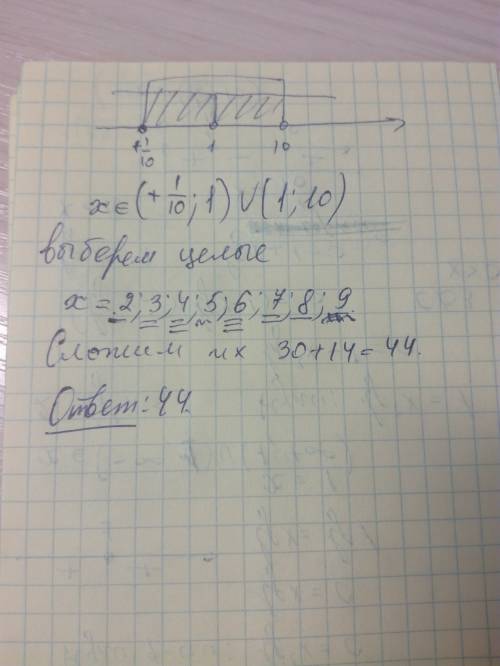 +1/10 1 10
x ∈ (+1/10; 1) ∪ (1; 10)
выберем целые
x = 2; 3; 4; 5; 6; 7; 8; 9
Сложим их 30+14=44.
Ответ: 44.